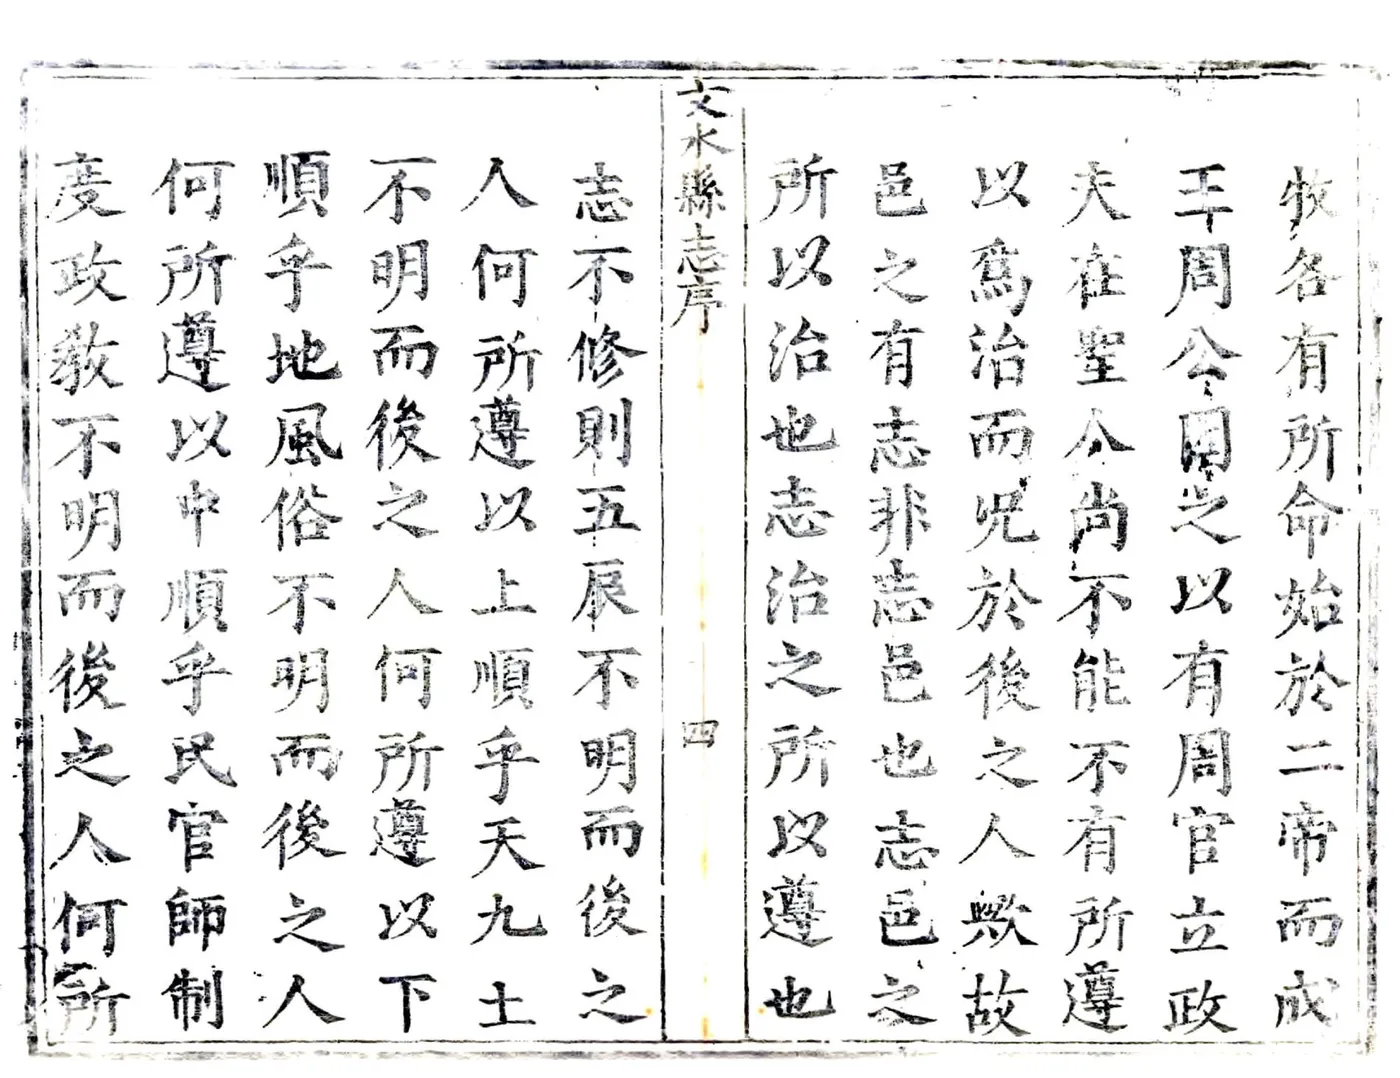 牧各有所命始於二帝而成
王周公因之以有周官立政
夫在聖人尚不能不有所遵
以爲治而况於後之人歟故
邑之有志非志邑也志邑之
所以治也志治之所以遵也
文水縣志序
四
志不修則五辰不明而後之
人何所遵以上順乎天九土
不明而後之人何所遵以下
順乎地風俗不明而後之人
何所遵以中順乎民官師制
度政教不明而後之人何所